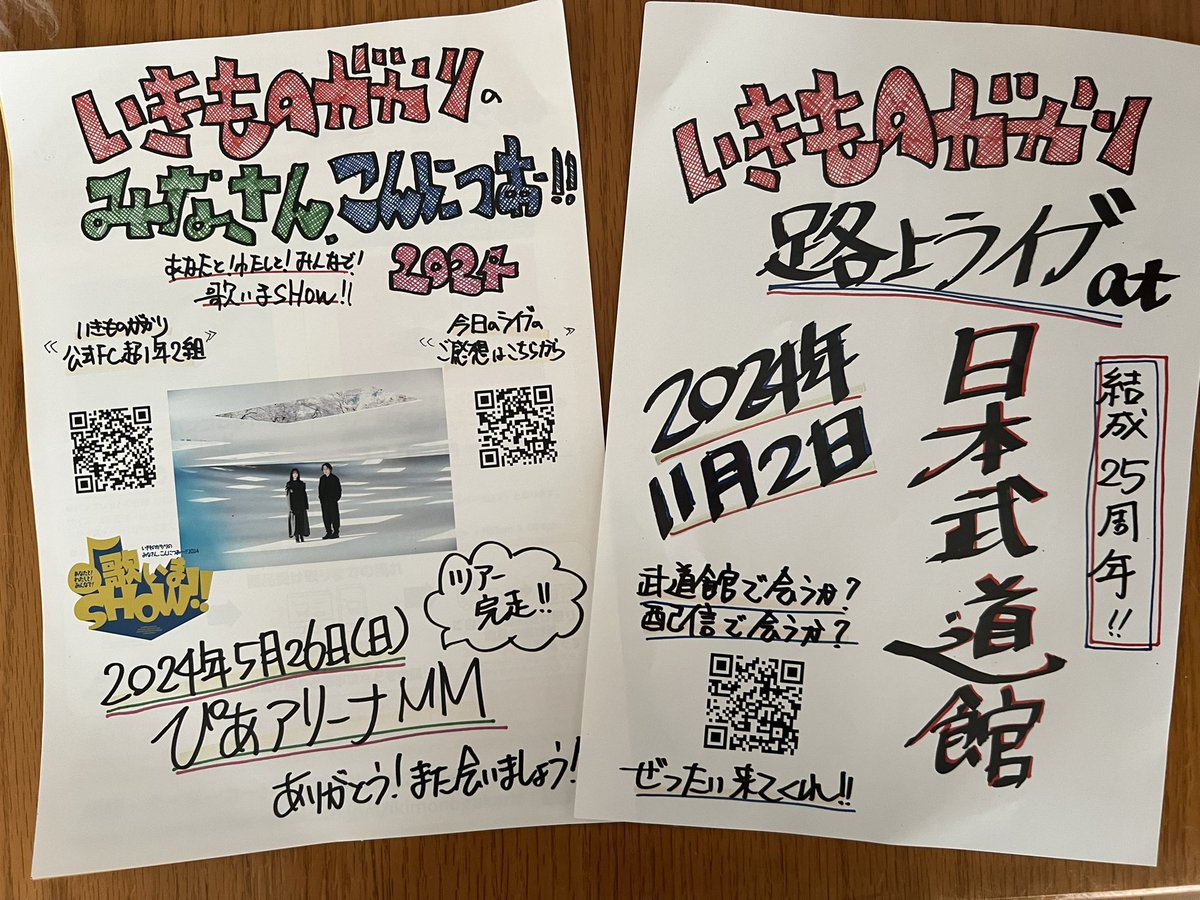 いきものがかりの
みなさん、こんにつあー!!
2024
あなたと!わたしと!みんなで!
歌いまSHow!!
いきものがかり
公式FC超1年2組
今日のライブの
ご感想はこちらから
いきものがかりの
みなさん、こんにつあー!! 2024
あなたと!
わたしと!
みんなで!
歌いま
SHOW!!
ツアー
完走!!
2024年5月26日(日)
ぴあアリーナMM
ありがとう!また会いましょう!
いきものがかり
路上ライブ
at
日本武道館
2024年
11月2日
結成25周年!!
武道館で会うか?
配信で会うか?
ぜったい来てくれ!!